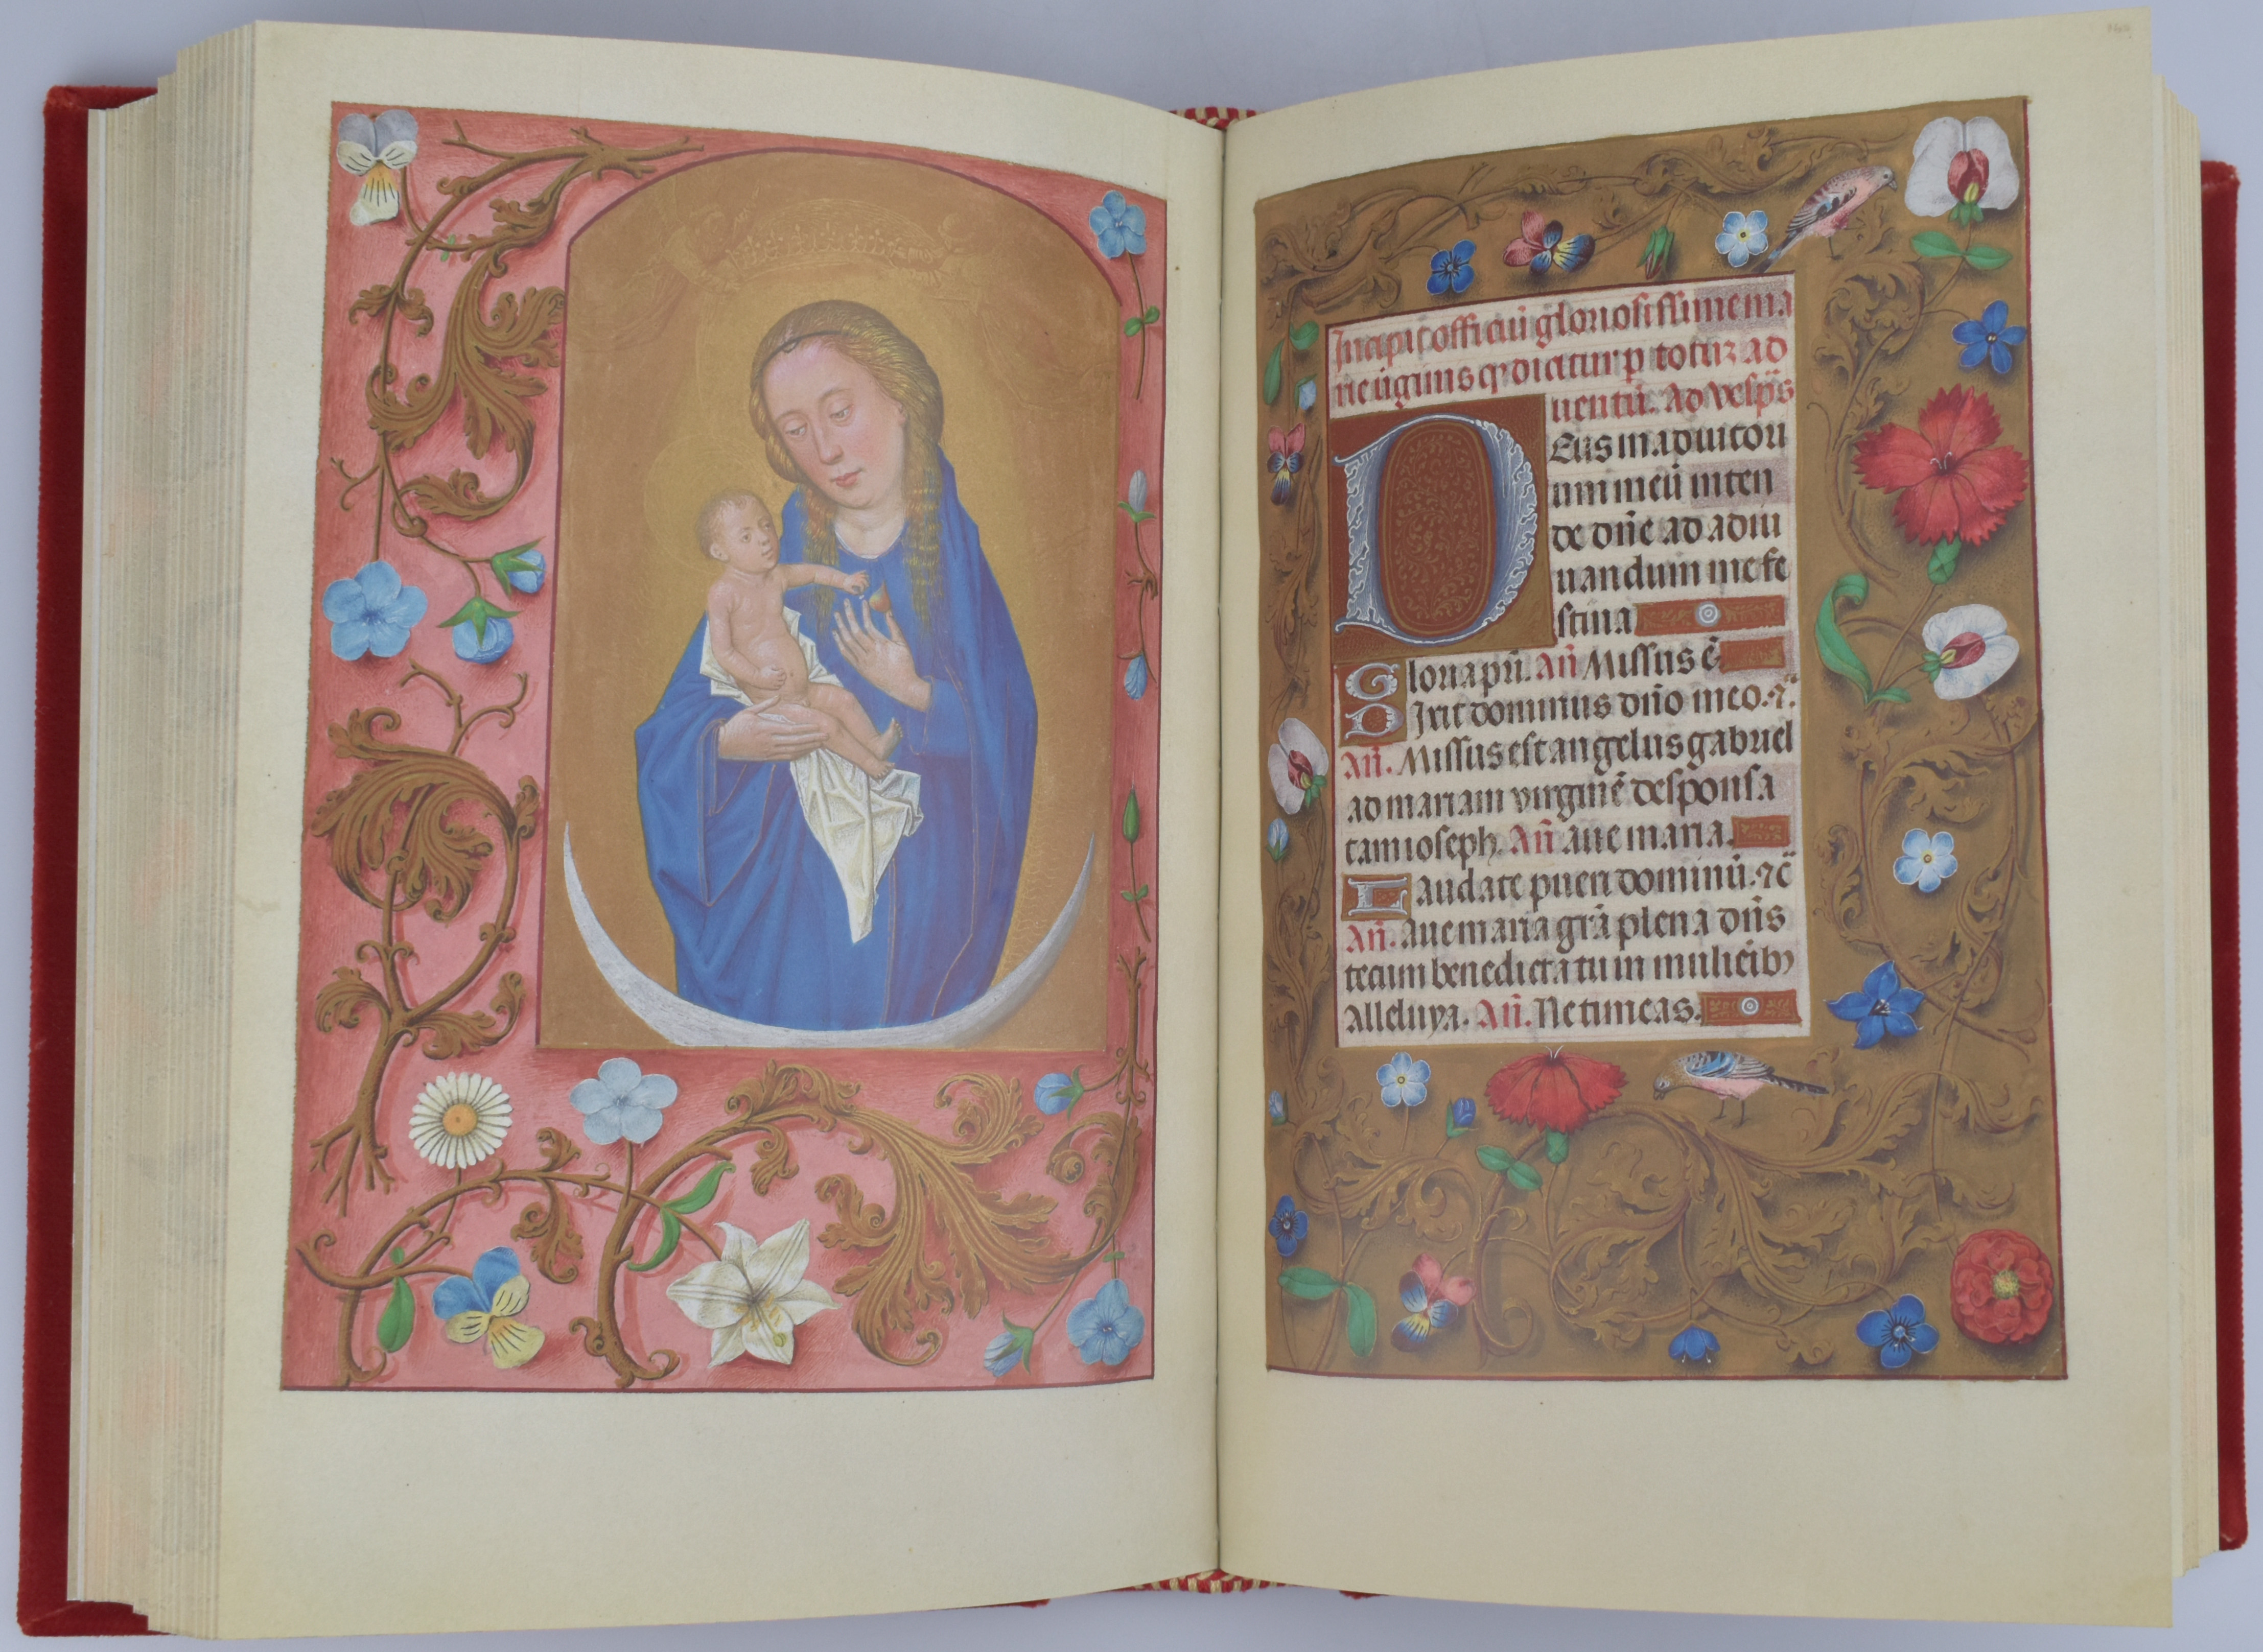 Incipit officiũ gloriosissime ma
rie v̈ginis qď dicitur p totuz ad
uentũ. Ad vesp̄s
Eus in adiutori
um meũ inten
de dñe ad adiu
uandum me fe
stina
Gloria pr̃i. Añ Missus ẽ
Dixit dominus dño meo. ⁊ c̃.
Añ. Missus est angelus gabriel
ad mariam virginẽ desponsa
tam ioseph. Añ aue maria.
Laudate pueri dominũ. ⁊c̃
Añ. aue maria grã plena dñs
tecum benedicta tu in muliẽib9
alleluya. Añ. Ne timeas.